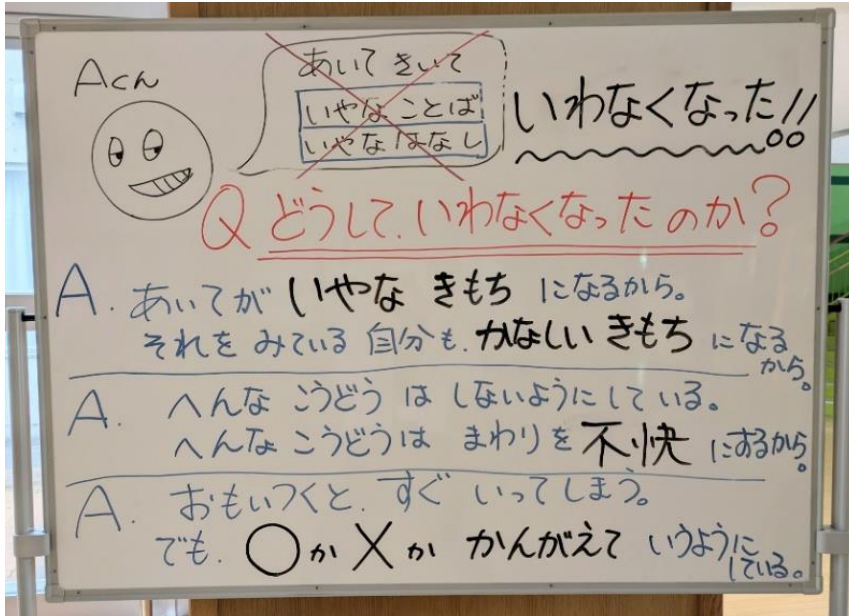 Aくん
あいて きいて
いやな ことば
いやな はなし
いわなくなった!!
Q どうして、いわなくなったのか?
A. あいてが いやな きもち になるから。
それを みている 自分も、かなしい きもち になるから。
A. へんな こうどう は しないようにしている。
へんな こうどうは まわりを 不快 にするから。
A. おもいつくと、すぐ いってしまう。
でも、○か×か かんがえて いうようにしている。